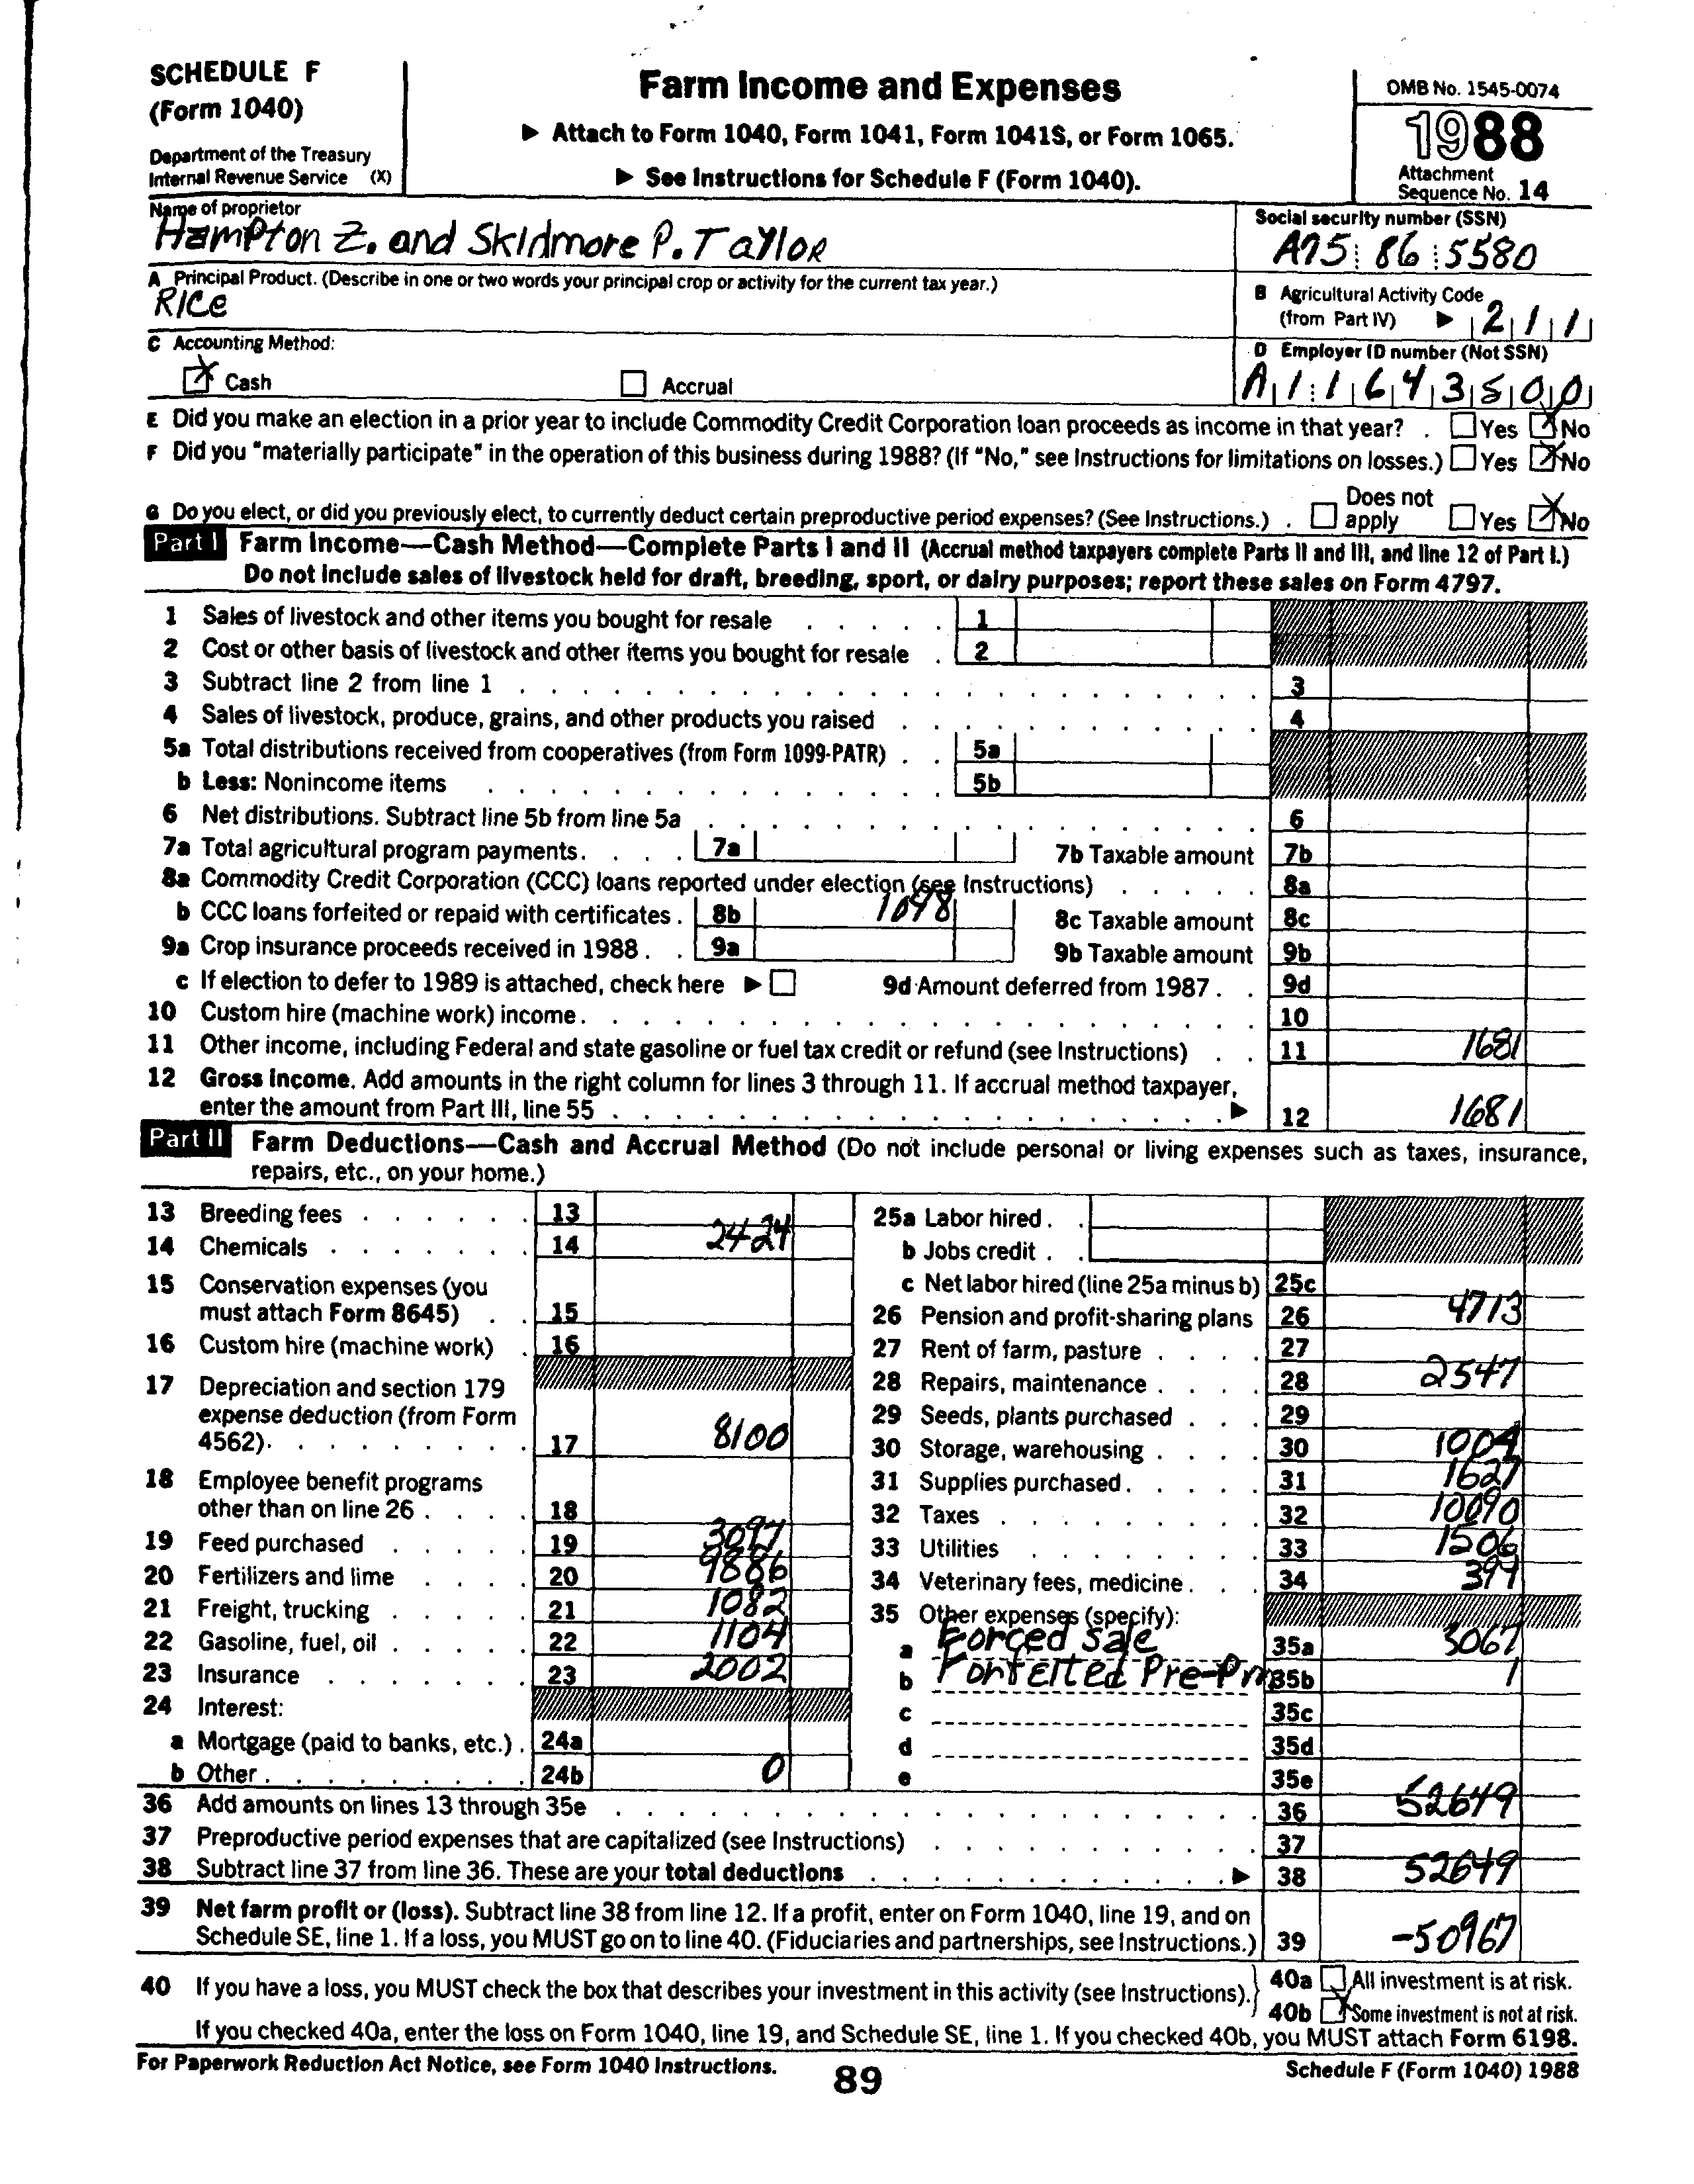 SCHEDULE F
(Form 1040)
Department of the Treasury
Internal Revenue Service (X)
Farm Income and Expenses
▶ Attach to Form 1040, Form 1041, Form 1041S, or Form 1065.
▶ See Instructions for Schedule F (Form 1040).
OMB No. 1545-0074
1988
Attachment
Sequence No. 14
Name of proprietor
Hampton Z. and Skidmore P. Taylor
Social security number (SSN)
A75 86 5580
A Principal Product. (Describe in one or two words your principal crop or activity for the current tax year.)
Rice
B Agricultural Activity Code
(from Part IV) ▶ 2 1 1
C Accounting Method:
Cash Accrual
D Employer ID number (Not SSN)
A 1 1 6 4 3 5 0 0
E Did you make an election in a prior year to include Commodity Credit Corporation loan proceeds as income in that year? . Yes No
F Did you "materially participate" in the operation of this business during 1988? (If "No," see Instructions for limitations on losses.) Yes No
G Do you elect, or did you previously elect, to currently deduct certain preproductive period expenses? (See Instructions.) . Does not apply Yes No
Part I Farm Income—Cash Method—Complete Parts I and II (Accrual method taxpayers complete Parts II and III, and line 12 of Part I.)
Do not include sales of livestock held for draft, breeding, sport, or dairy purposes; report these sales on Form 4797.
1 Sales of livestock and other items you bought for resale 1
2 Cost or other basis of livestock and other items you bought for resale 2
3 Subtract line 2 from line 1 3
4 Sales of livestock, produce, grains, and other products you raised 4
5a Total distributions received from cooperatives (from Form 1099-PATR) 5a
b Less: Nonincome items 5b
6 Net distributions. Subtract line 5b from line 5a 6
7a Total agricultural program payments. 7a 7b Taxable amount 7b
8a Commodity Credit Corporation (CCC) loans reported under election (see Instructions) 8a
b CCC loans forfeited or repaid with certificates . 8b 1098 8c Taxable amount 8c
9a Crop insurance proceeds received in 1988 . 9a 9b Taxable amount 9b
c If election to defer to 1989 is attached, check here ▶ 9d Amount deferred from 1987 . 9d
10 Custom hire (machine work) income. 10
11 Other income, including Federal and state gasoline or fuel tax credit or refund (see Instructions) 11 1681
12 Gross Income. Add amounts in the right column for lines 3 through 11. If accrual method taxpayer,
enter the amount from Part III, line 55 ▶ 12 1681
Part II Farm Deductions—Cash and Accrual Method (Do not include personal or living expenses such as taxes, insurance,
repairs, etc., on your home.)
13 Breeding fees 13
14 Chemicals 14 2424
15 Conservation expenses (you
must attach Form 8645) 15
16 Custom hire (machine work) 16
17 Depreciation and section 179
expense deduction (from Form
4562). 17 8100
18 Employee benefit programs
other than on line 26 . 18
19 Feed purchased 19 3097
20 Fertilizers and lime 20 9886
21 Freight, trucking 21 1082
22 Gasoline, fuel, oil 22 1104
23 Insurance 23 2002
24 Interest:
a Mortgage (paid to banks, etc.) . 24a
b Other . 24b 0
25a Labor hired .
b Jobs credit .
c Net labor hired (line 25a minus b) 25c
26 Pension and profit-sharing plans 26 4713
27 Rent of farm, pasture 27
28 Repairs, maintenance 28 2547
29 Seeds, plants purchased 29
30 Storage, warehousing 30 1004
31 Supplies purchased. 31 1627
32 Taxes 32 10090
33 Utilities 33 1506
34 Veterinary fees, medicine. 34 399
35 Other expenses (specify):
a Forced sale 35a 3067
b Forfeited Pre-Pr 35b 1
c 35c
d 35d
e 35e
36 Add amounts on lines 13 through 35e 36 52649
37 Preproductive period expenses that are capitalized (see Instructions) 37
38 Subtract line 37 from line 36. These are your total deductions ▶ 38 52649
39 Net farm profit or (loss). Subtract line 38 from line 12. If a profit, enter on Form 1040, line 19, and on
Schedule SE, line 1. If a loss, you MUST go on to line 40. (Fiduciaries and partnerships, see Instructions.) 39 -50967
40 If you have a loss, you MUST check the box that describes your investment in this activity (see Instructions). 40a All investment is at risk.
40b Some investment is not at risk.
If you checked 40a, enter the loss on Form 1040, line 19, and Schedule SE, line 1. If you checked 40b, you MUST attach Form 6198.
For Paperwork Reduction Act Notice, see Form 1040 Instructions.
89
Schedule F (Form 1040) 1988